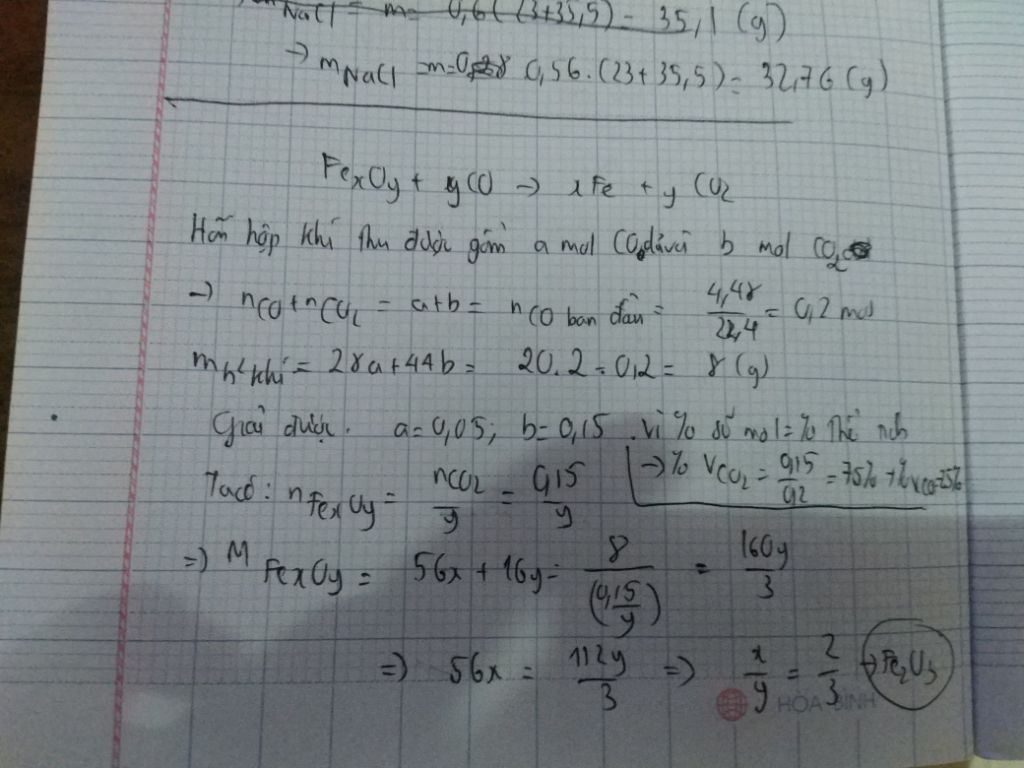 NaCl = m = 0,6(23+35,5) = 35,1 (g)
→ mNaCl = m = 0,56.(23+35,5) = 32,76 (g)
FexOy + yCO → xFe + yCO2
Hỗn hợp khí thu được gồm a mol CO dư và b mol CO2
→ nCO + nCO2 = a+b = nCO ban đầu = 4,48/22,4 = 0,2 mol
mh² khí = 28a+44b = 20.2.0,2 = 8 (g)
Giải được. a=0,05; b=0,15. Vì % số mol = % thể tích
→ % VCO2 = 0,15/0,2 = 75% → %VCO=25%
Ta có: nFexOy = nCO2/y = 0,15/y
=> MFexOy = 56x + 16y = 8/(0,15/y) = 160y/3
=> 56x = 112y/3 => x/y = 2/3 → Fe2O3
HÒA BÌNH